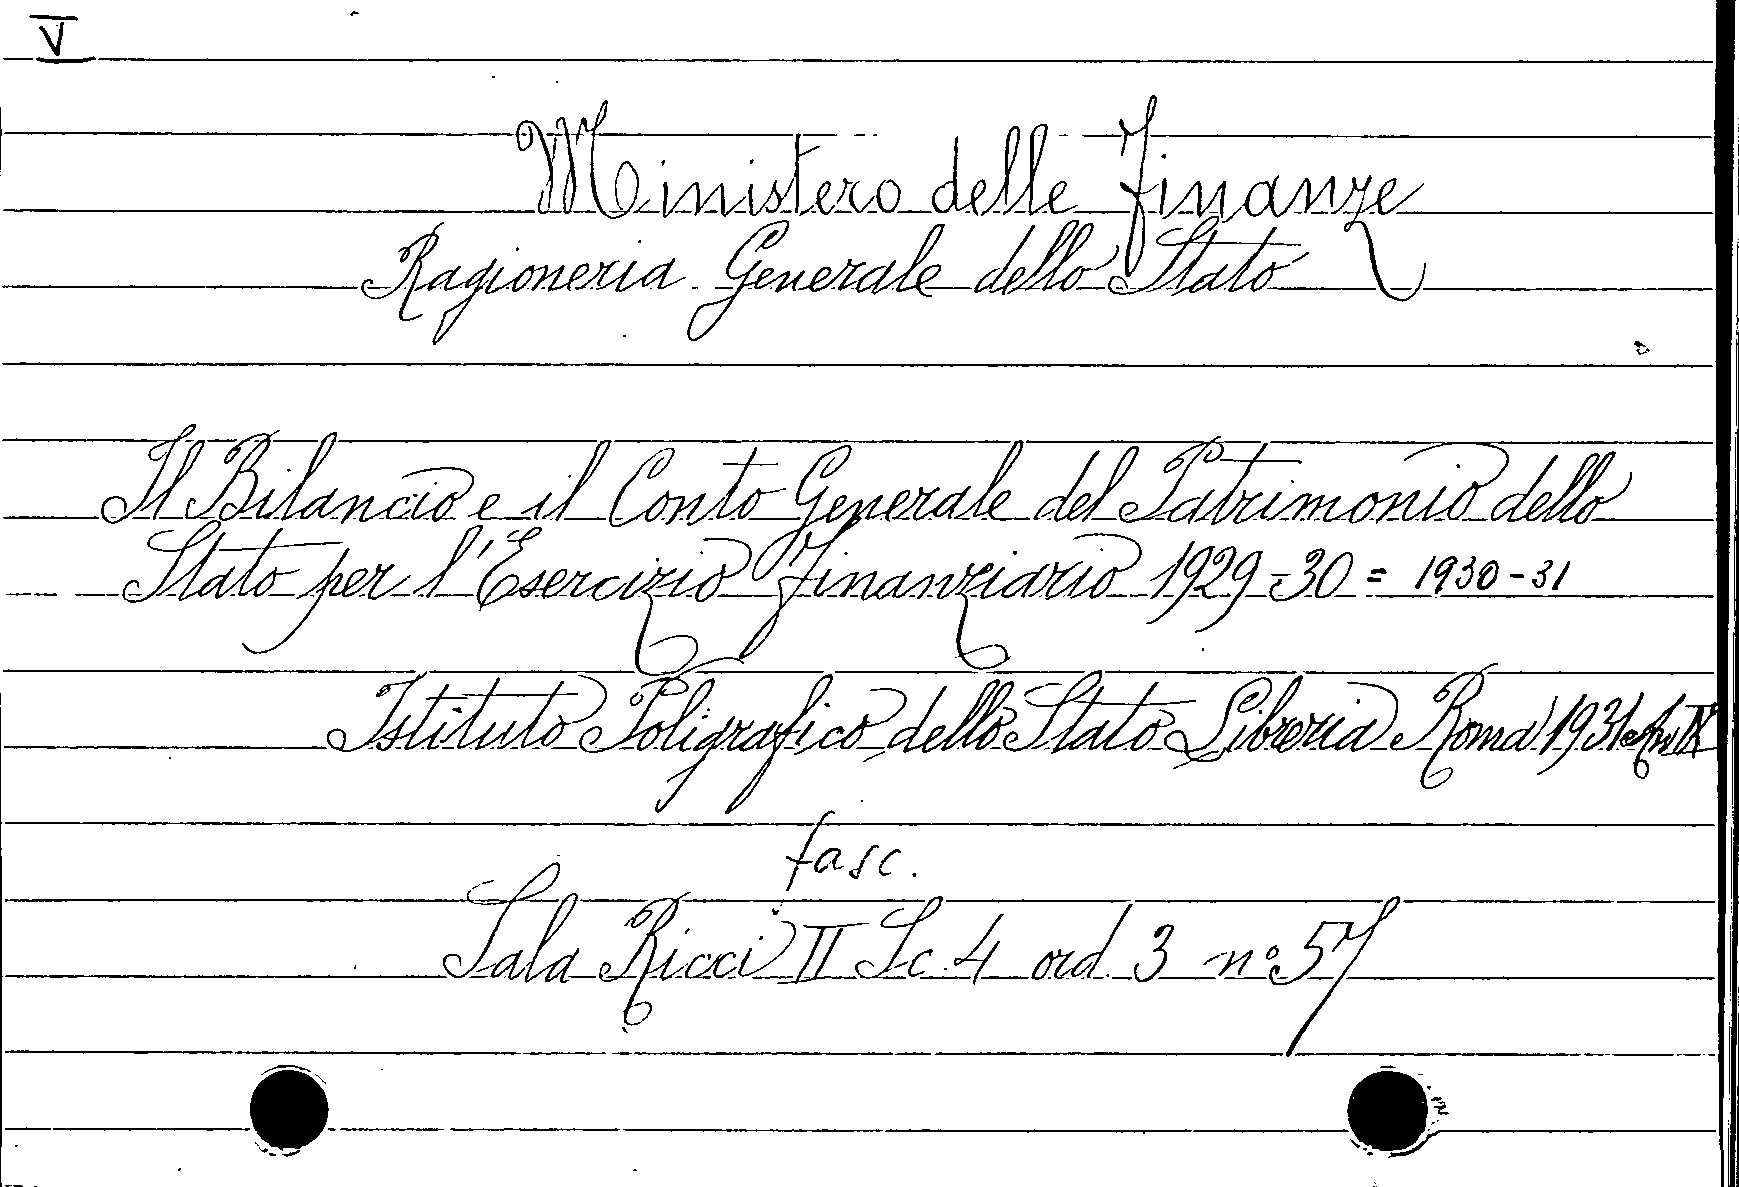 V
Ministero delle Finanze
Ragioneria Generale dello Stato
Il Bilancio e il Conto Generale del Patrimonio dello
Stato per l'Esercizio Finanziario 1929-30 = 1930-31
Istituto Poligrafico dello Stato Libreria Roma 1931 An IX
fasc.
Sala Ricci II Sc. 4 ord. 3 n° 57